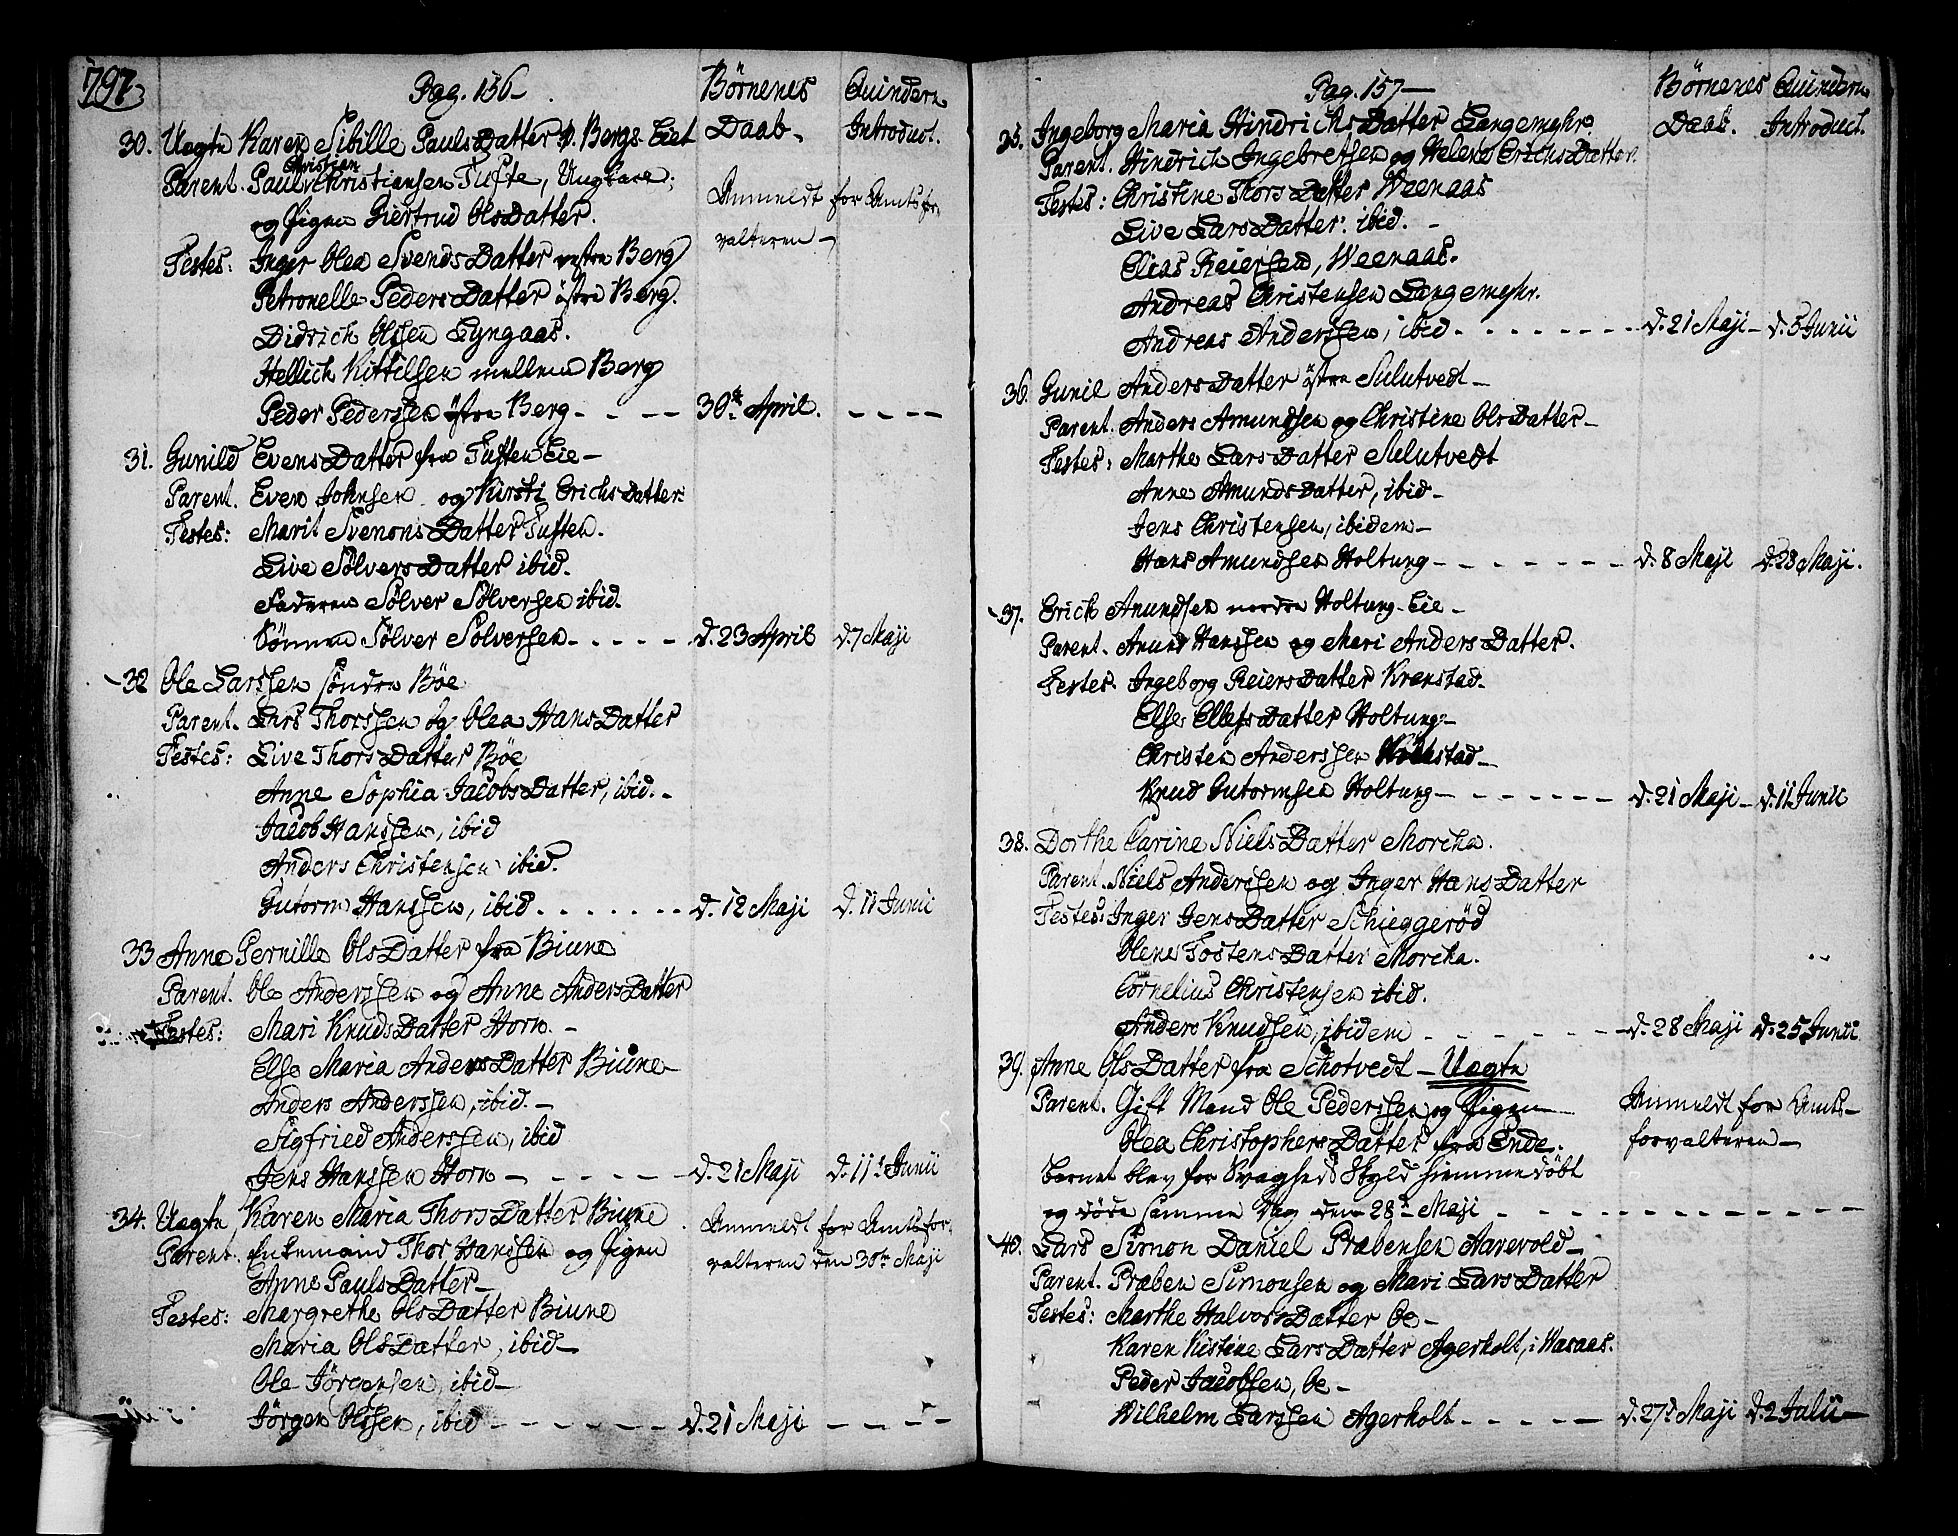 797
Pag. 156
Börnenes Daab.
Quindern Introduct.
30. Uægte Karen Sibille PaulsDatter v. Bergs Eiet
Christian
Parent. Paul Christiansen Tufte, Ungkarl;
og Pigen Giertrud OlsDatter.
Anmeldt for Amtsfor
valteren
Testes: Inger Olea SvendsDatter vestre Berg
Petronelle PedersDatter östre Berg.
Didrich Olssen Lyngaas.
Hellich Kittilsen mellem Berg
Peder Pederssen östre Berg 30te April.
31. Gunild EvensDatter fra Tuften Eie
Parent. Even Johnsen og Kirsti ErichsDatter
Testes: Marit SvenonsDatter Tuften.
Live SölversDatter ibid.
Faderen Sölver Sölversen ibid.
Sönnen Sölver Sölversen d. 23 April d. 7 Maji
32 Ole Larssen söndre Böe
Parent. Lars Thorssen og Olea HansDatter
Testes: Live ThorsDatter Böe
Anne Sophia JacobsDatter, ibid.
Jacob Hanssen, ibid
Anders Christensen ibid.
Gutorm Hanssen, ibid d. 12 Maji d. 11 Junii
33 Anne Pernille OlsDatter fra Biune
Parent. Ole Anderssen og Anne AndersDatter
Testes: Mari KnudsDatter Horn.
Else Maria AndersDatter Biune
Anders Anderssen, ibid.
Sigfried Anderssen, ibid
Jens Hanssen Horn d. 21 Maji d. 11te Junii
34. Uægte Karen Maria ThorsDatter Biune
Parent. Enkemand Thor Hanssen og Pigen
Anne PaulsDatter
Anmeldt for Amtsfor
valteren den 30te Maji
Testes: Margrethe OlsDatter Biune
Maria OlsDatter, ibid
Ole Jörgensen, ibid
Jörgen Olssen, ibid d. 21 Maji
Pag. 157
Börnenes Daab.
Quindern Introduct.
35. Ingeborg Maria HindrichsDatter Langemyhr.
Parent. Hindrich Ingebretsen og Helene ErichsDatter.
Testes: Christine ThorsDatter Weenaas
Live LarsDatter ibid.
Elias Reiersen, Weenaas.
Andreas Christensen Langemyhr.
Andreas Anderssen, ibid d. 21 Maji d. 5 Junii
36. Gunil AndersDatter östre Sulutvedt
Parent. Anders Amundsen og Christine OlsDatter
Testes: Marthe LarsDatter Sulutvedt
Anne AmundsDatter, ibid
Jens Christensen, ibidem
Hans Amundsen Holtung d. 8 Maji d. 28 Maji.
37. Erich Anundsen nordre Holtung Eie
Parent. Anund Hanssen og Mari AndersDatter.
Testes. Ingeborg ReiersDatter Krenstad
Else EllefsDatter Holtung
Christen Anderssen
Knud Gutormsen Holtung d. 21 Maji d. 11 Junii
38. Dorthe Carine NielsDatter Morcka.
Parent. Niels Anderssen og Inger HansDatter
Testes: Inger JensDatter Schieggeröd
Olene TostensDatter Morcka.
Cornelius Christensen ibid.
Anders Knudsen, ibidem d. 28 Maji d. 25 Junii
39. Anne OlsDatter fra Schotvedt Uægte
Parent. Gift Mand Ole Pederssen og Pigen
Olea ChristophersDatter fra Ende.
Anmeldt for Amts-
forvalteren
Barnet blev for Svagheds Skyld hiemmedöbt
og döde samme Dag den 28de Maji
40. Lars Simon Daniel Præbensen Aarevold
Parent. Præben Simonsen og Mari LarsDatter
Testes: Marthe HalvorsDatter Oe
Karen Kistine LarsDatter Agerholt, i Wasaas.
Peder Jacobsen, Oe
Wilhelm Larssen Agerholt d. 27de Maji d. 2 Julii